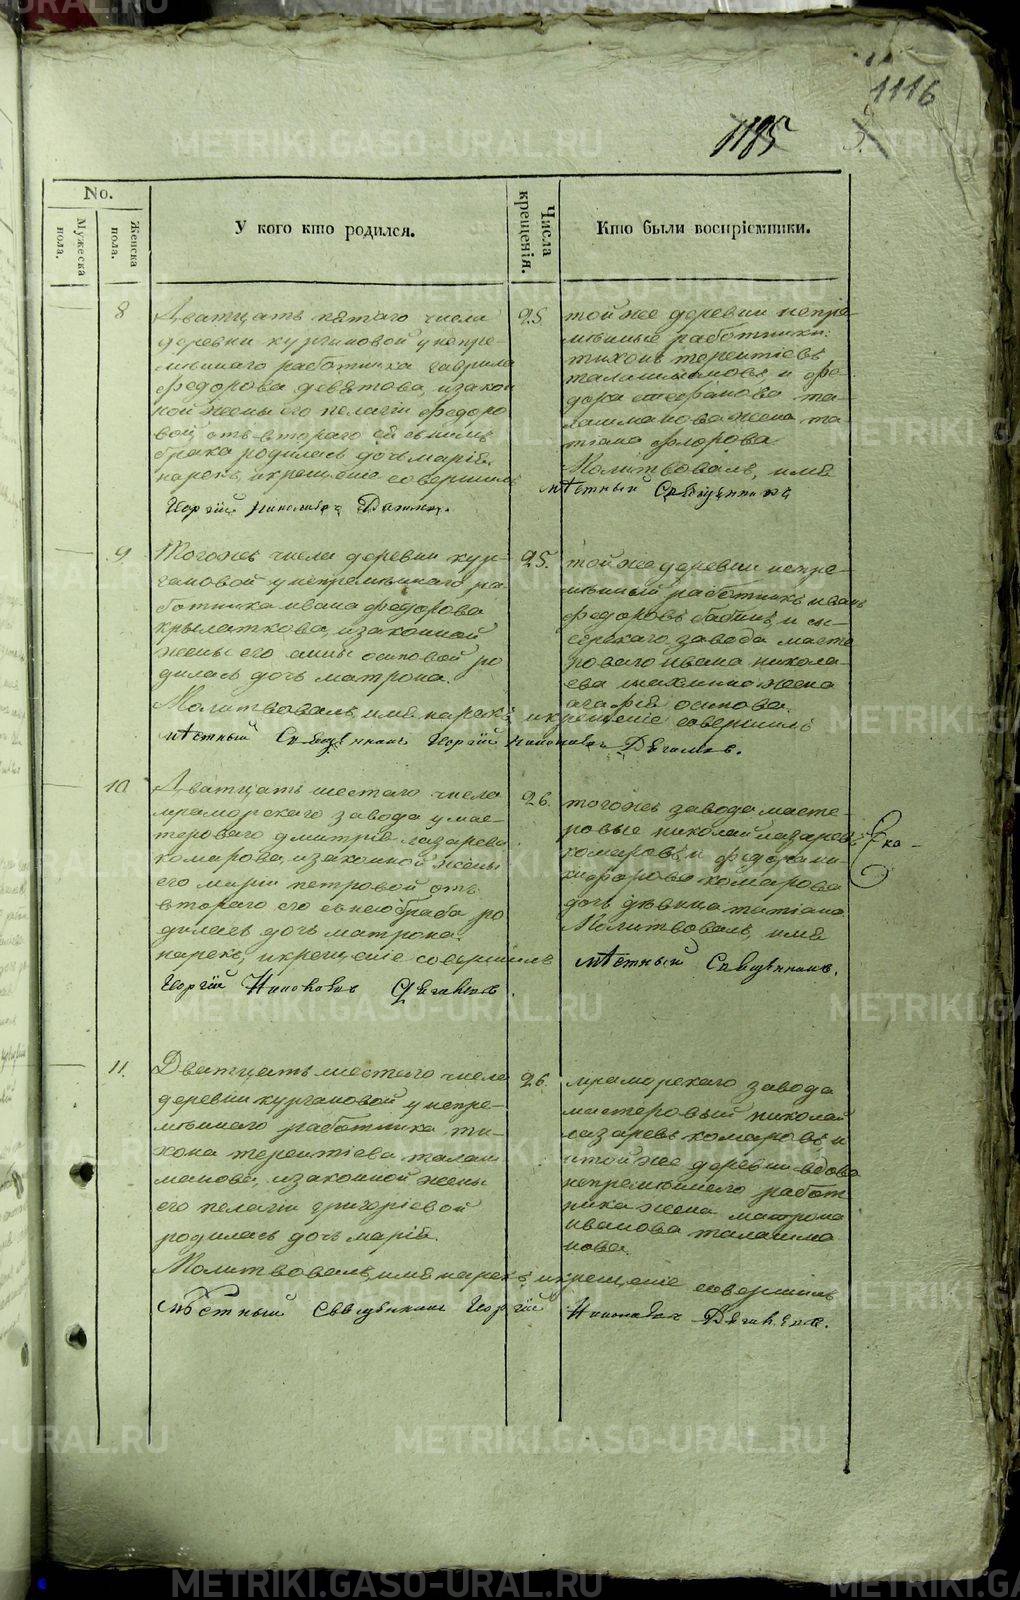 1116
1185
3.
No.
Мужеска пола.
Женска пола.
У кого кто родился.
Числа крещенія.
Кто были воспріємники.
8
Дватцать пятаго числа
деревни кургановой у непре-
мѣннаго работника гаврила
федорова девятова, изакон
ной жены его пелагіи федоро
вой, отъ втораго ей сънимъ
брака родилась дочь марія.
нарекъ, икрещеніе совершилъ
25
той же деревни непре-
мѣнные работники:
тихонъ терентіевъ
талашмановъ и фе-
дора стефанова та-
лашманова жена та-
тіана флорова.
Молитвовалъ, имя
мѣстный Священникъ
Георгій
9.
Тогожъ числа деревни кур-
гановой у непремѣннаго ра-
ботника ивана федорова
крылаткова, изаконной
жены его анны осиповой ро
дилась дочь матрона.
Молитвовалъ, имя нарекъ, икрещеніе совершилъ
мѣстный Священникъ Георгій
25.
той же деревни непре-
мѣнный работникъ иванъ
федоровъ бабинъ, и сы-
серскаго завода масте
роваго ивана никола-
ева жена
агафія осипова.
10.
Дватцать шестаго числа
мраморскаго завода у мас-
тероваго дмитрія лазарева
комарова, изаконной жены
его маріи петровой отъ
втораго его снею брака ро
дилась дочь матрона.
нарекъ, икрещеніе совершилъ
Георгій
26.
тогожъ завода масте-
ровые николай лазаревъ
комаровъ и федора ни-
кифорова комарова
дочь дѣвица татіана
Молитвовалъ, имя
мѣстный Священникъ.
Ека-
11.
Дватцать шестаго числа
деревни кургановой у непре-
мѣннаго работника ти-
хона терентіева талаш
манова, изаконной жены
его пелагіи григоріевой
родилась дочь марія.
Молитвовалъ, имя нарекъ, икрещеніе совершилъ
мѣстный Священникъ Георгій
26.
мраморскаго завода
мастеровый николай
лазаревъ комаровъ и
итой же деревни вдова
непремѣннаго работ
ника жена матрона
иванова талашма
нова.
METRIKI.GASO-URAL.RU